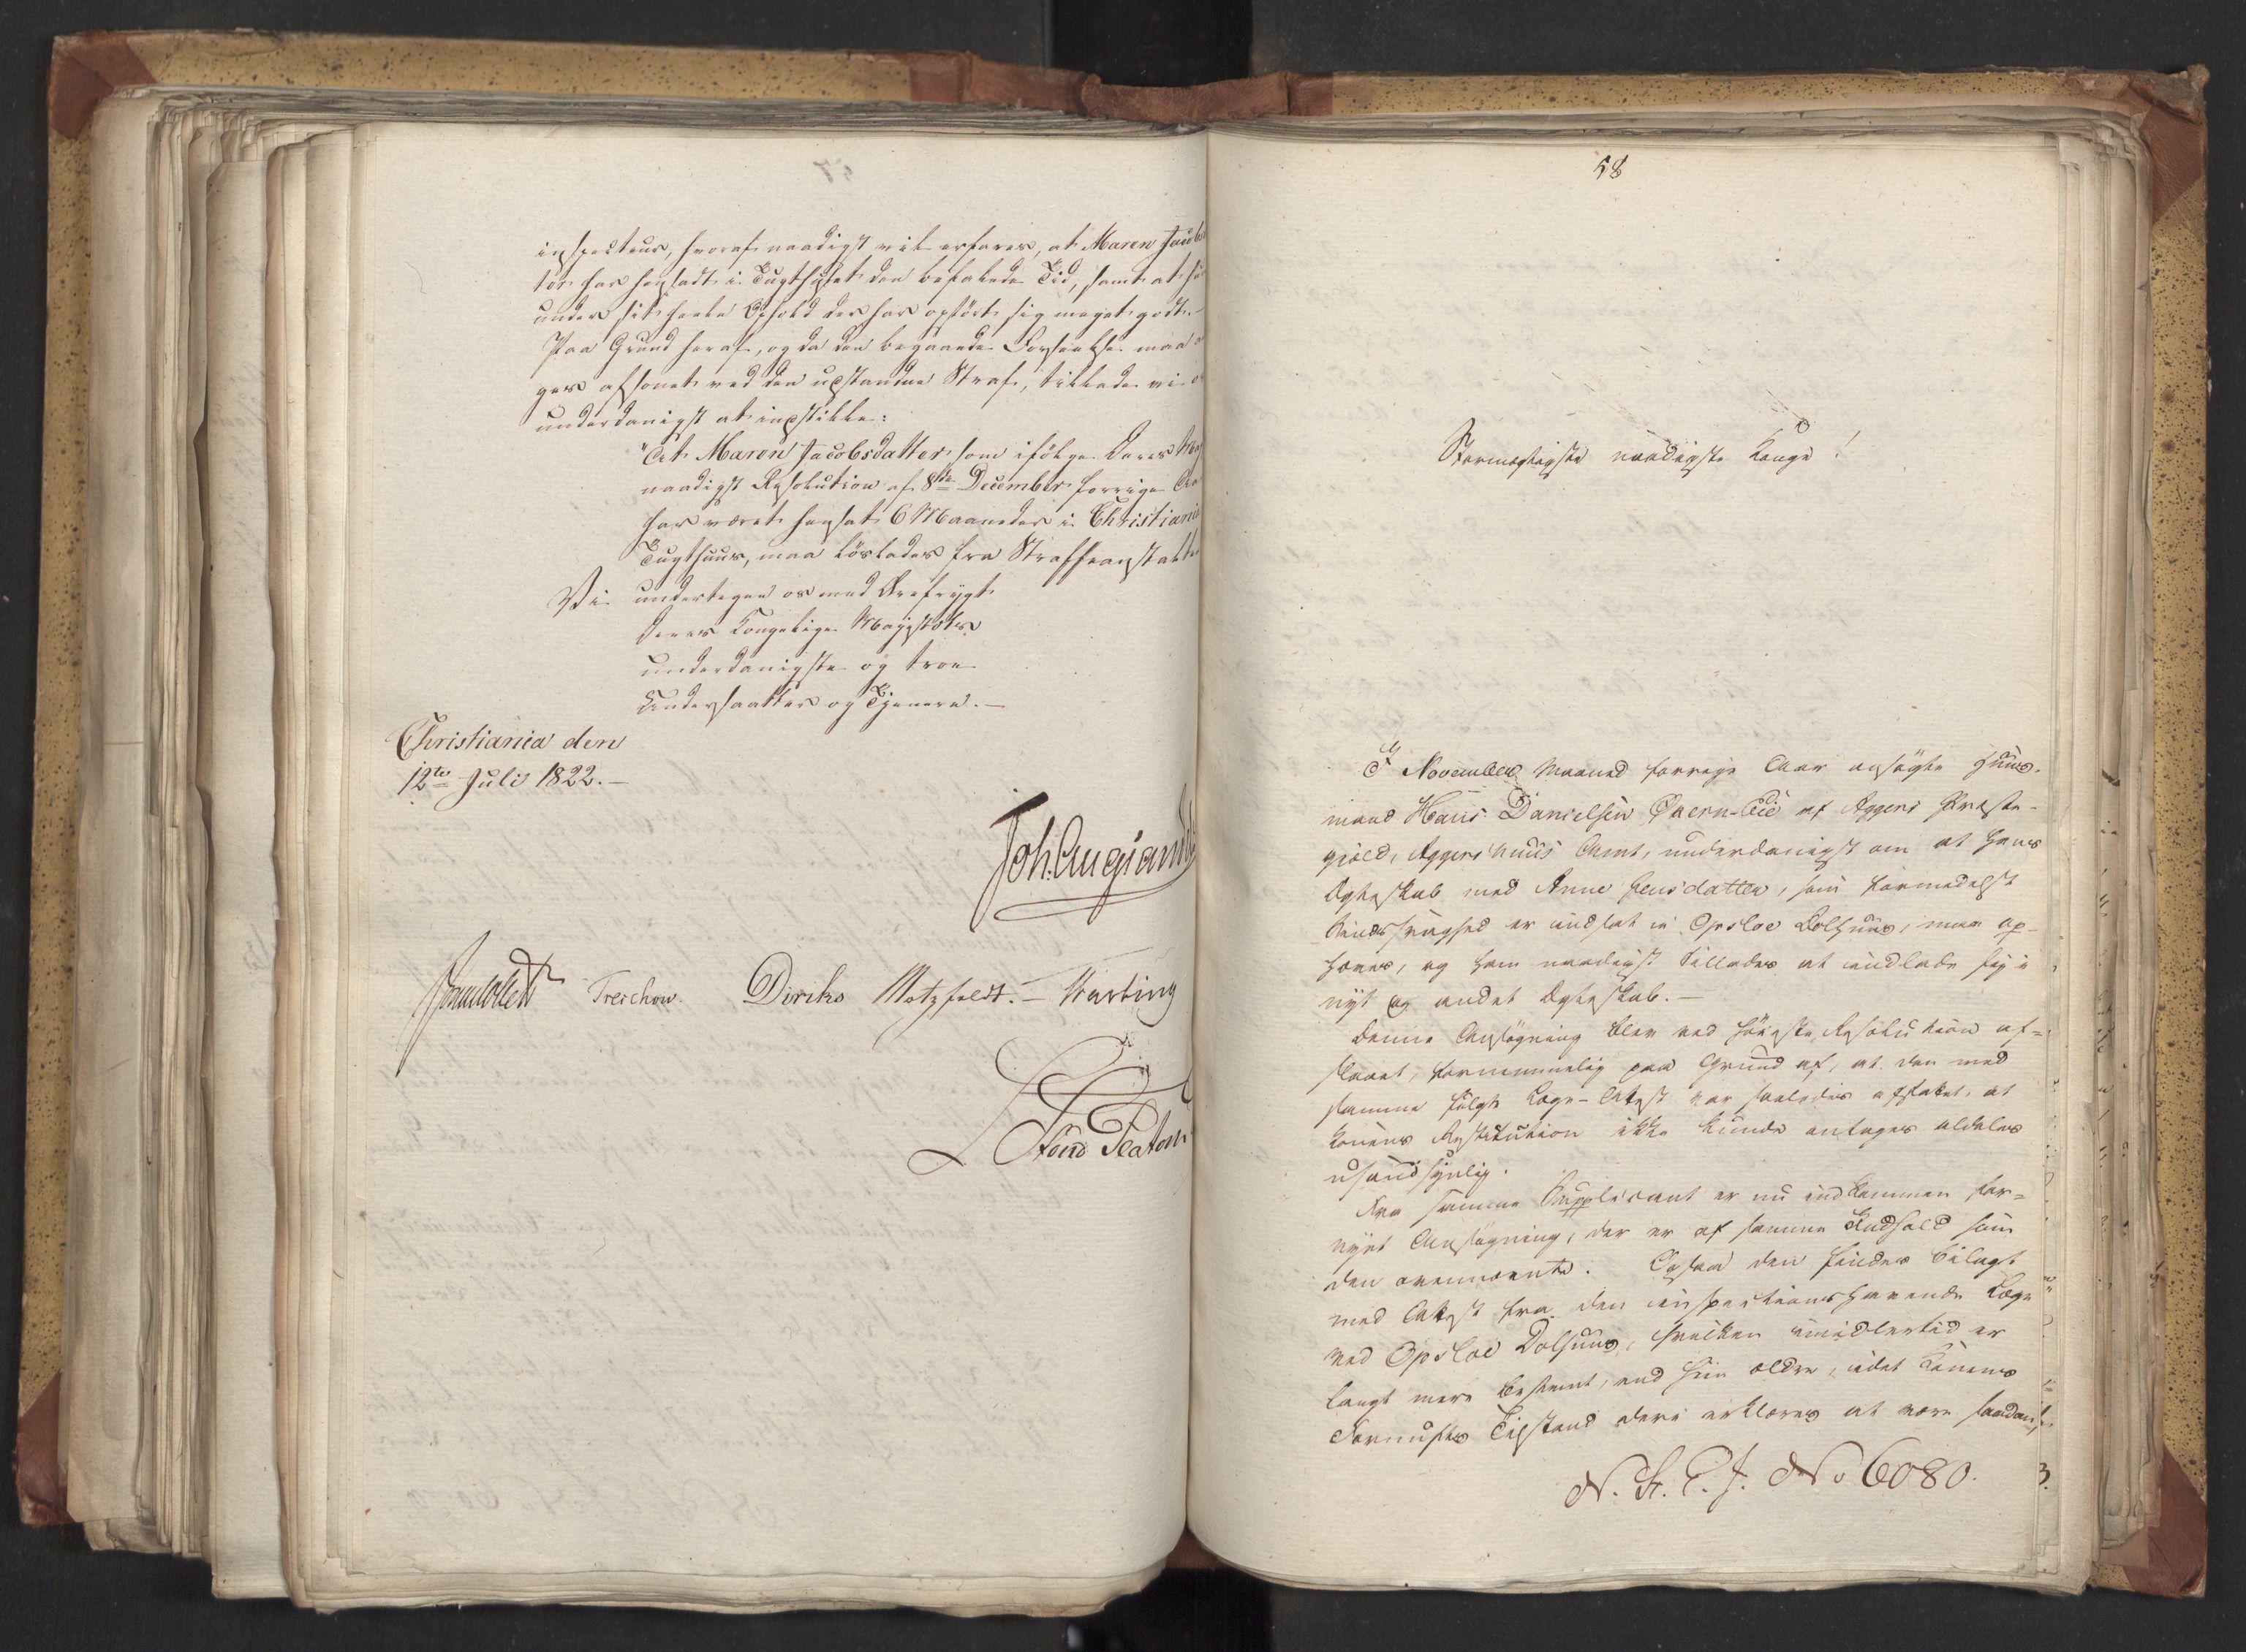 inspecteur, hvoraf naadigst vil erfares, at Maren Jacobs
ter har hensadt i Tugthuset den befalede Tid, samt at hun
under sit heele Ophold der har opført sig meget godt.
Paa Grund heraf, og da den begaaede Forseelse maa
ges afsonet ved den udstandne Straf, tillade vi os
underdanigst at indstille:
"At Maren Jacobsdatter som ifölge Deres
naadigst Resolution af 8de December forrige Aar
har været hensat 6 Maaneder i Christiania
Tugthuus, maa löslades fra Straffeanstalten
Vi undertegne os med Ærefrygt
Deres Kongelige Majestæts
underdanigste og troe
Undersaatter og Tjenere.—
Christiania den
12te Juli 1822.—
Joh. Aug. Sandels
Sommerfeldt Treschow Diriks Motzfeldt.— Krebs
Stoud Platou
58
Stormægtigste naadigste Konge!
I November Maaned forrige Aar ansögte Huus-
mand Hans Danielsen Qværn-Eie af Aggers Præste-
gield, Aggershuus Amt, underdanigst om at hans
Ægteskab med Anne Jensdatter, som formedelst
Sindssvaghed er indsat i Opsloe Dolhuus, maa op-
hæves, og ham naadigst tillades at indlade sig i
nyt og andet Ægteskab.—
Denne Ansögning blev ved höieste Resolution af-
slaaet, fornemmelig paa Grund af, at den med
samme fulgte Læge-Attest var saaledes affattet, at
Konens Restitution ikke kunde antages aldeles
usandsynlig.
Fra samme Supplicant er nu indkommen for-
nyet Ansögning, der er af samme Indhold som
den ovennævnte. Ogsaa den findes bilagt
med Attest fra den inspectionshavende Læge
ved Opsloe Dolhuus, hvilken imidlertid er
langt mere bestemt, end hiin ældre, idet Konens
Fornufts Tilstand deri erklæres at være saadan,
N. R. C. J. No 6080.
3.